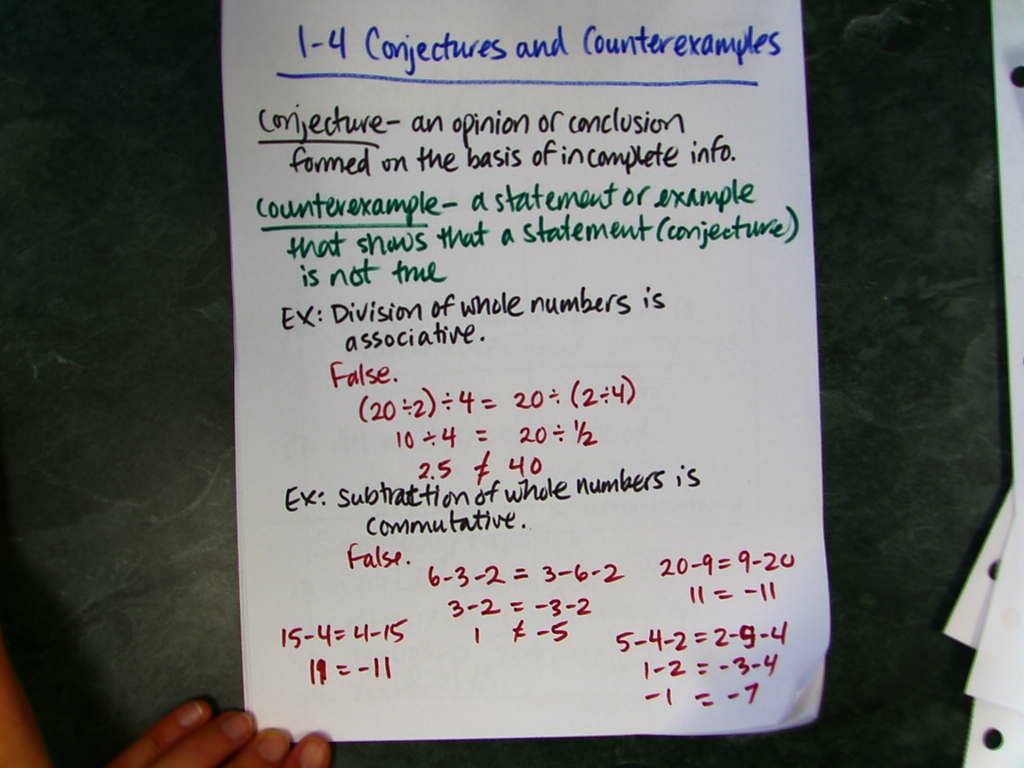 1-4 Conjectures and Counterexamples
Conjecture- an opinion or conclusion
formed on the basis of incomplete info.
Counterexample- a statement or example
that shows that a statement (conjecture)
is not true
EX: Division of whole numbers is
associative.
False.
(20÷2)÷4 = 20÷(2÷4)
10÷4 = 20÷1/2
2.5 ≠ 40
EX: Subtraction of whole numbers is
commutative.
False.
6-3-2 = 3-6-2
3-2 = -3-2
1 ≠ -5
20-9=9-20
11 = -11
15-4=4-15
11 = -11
5-4-2=2-5-4
1-2 = -3-4
-1 = -7